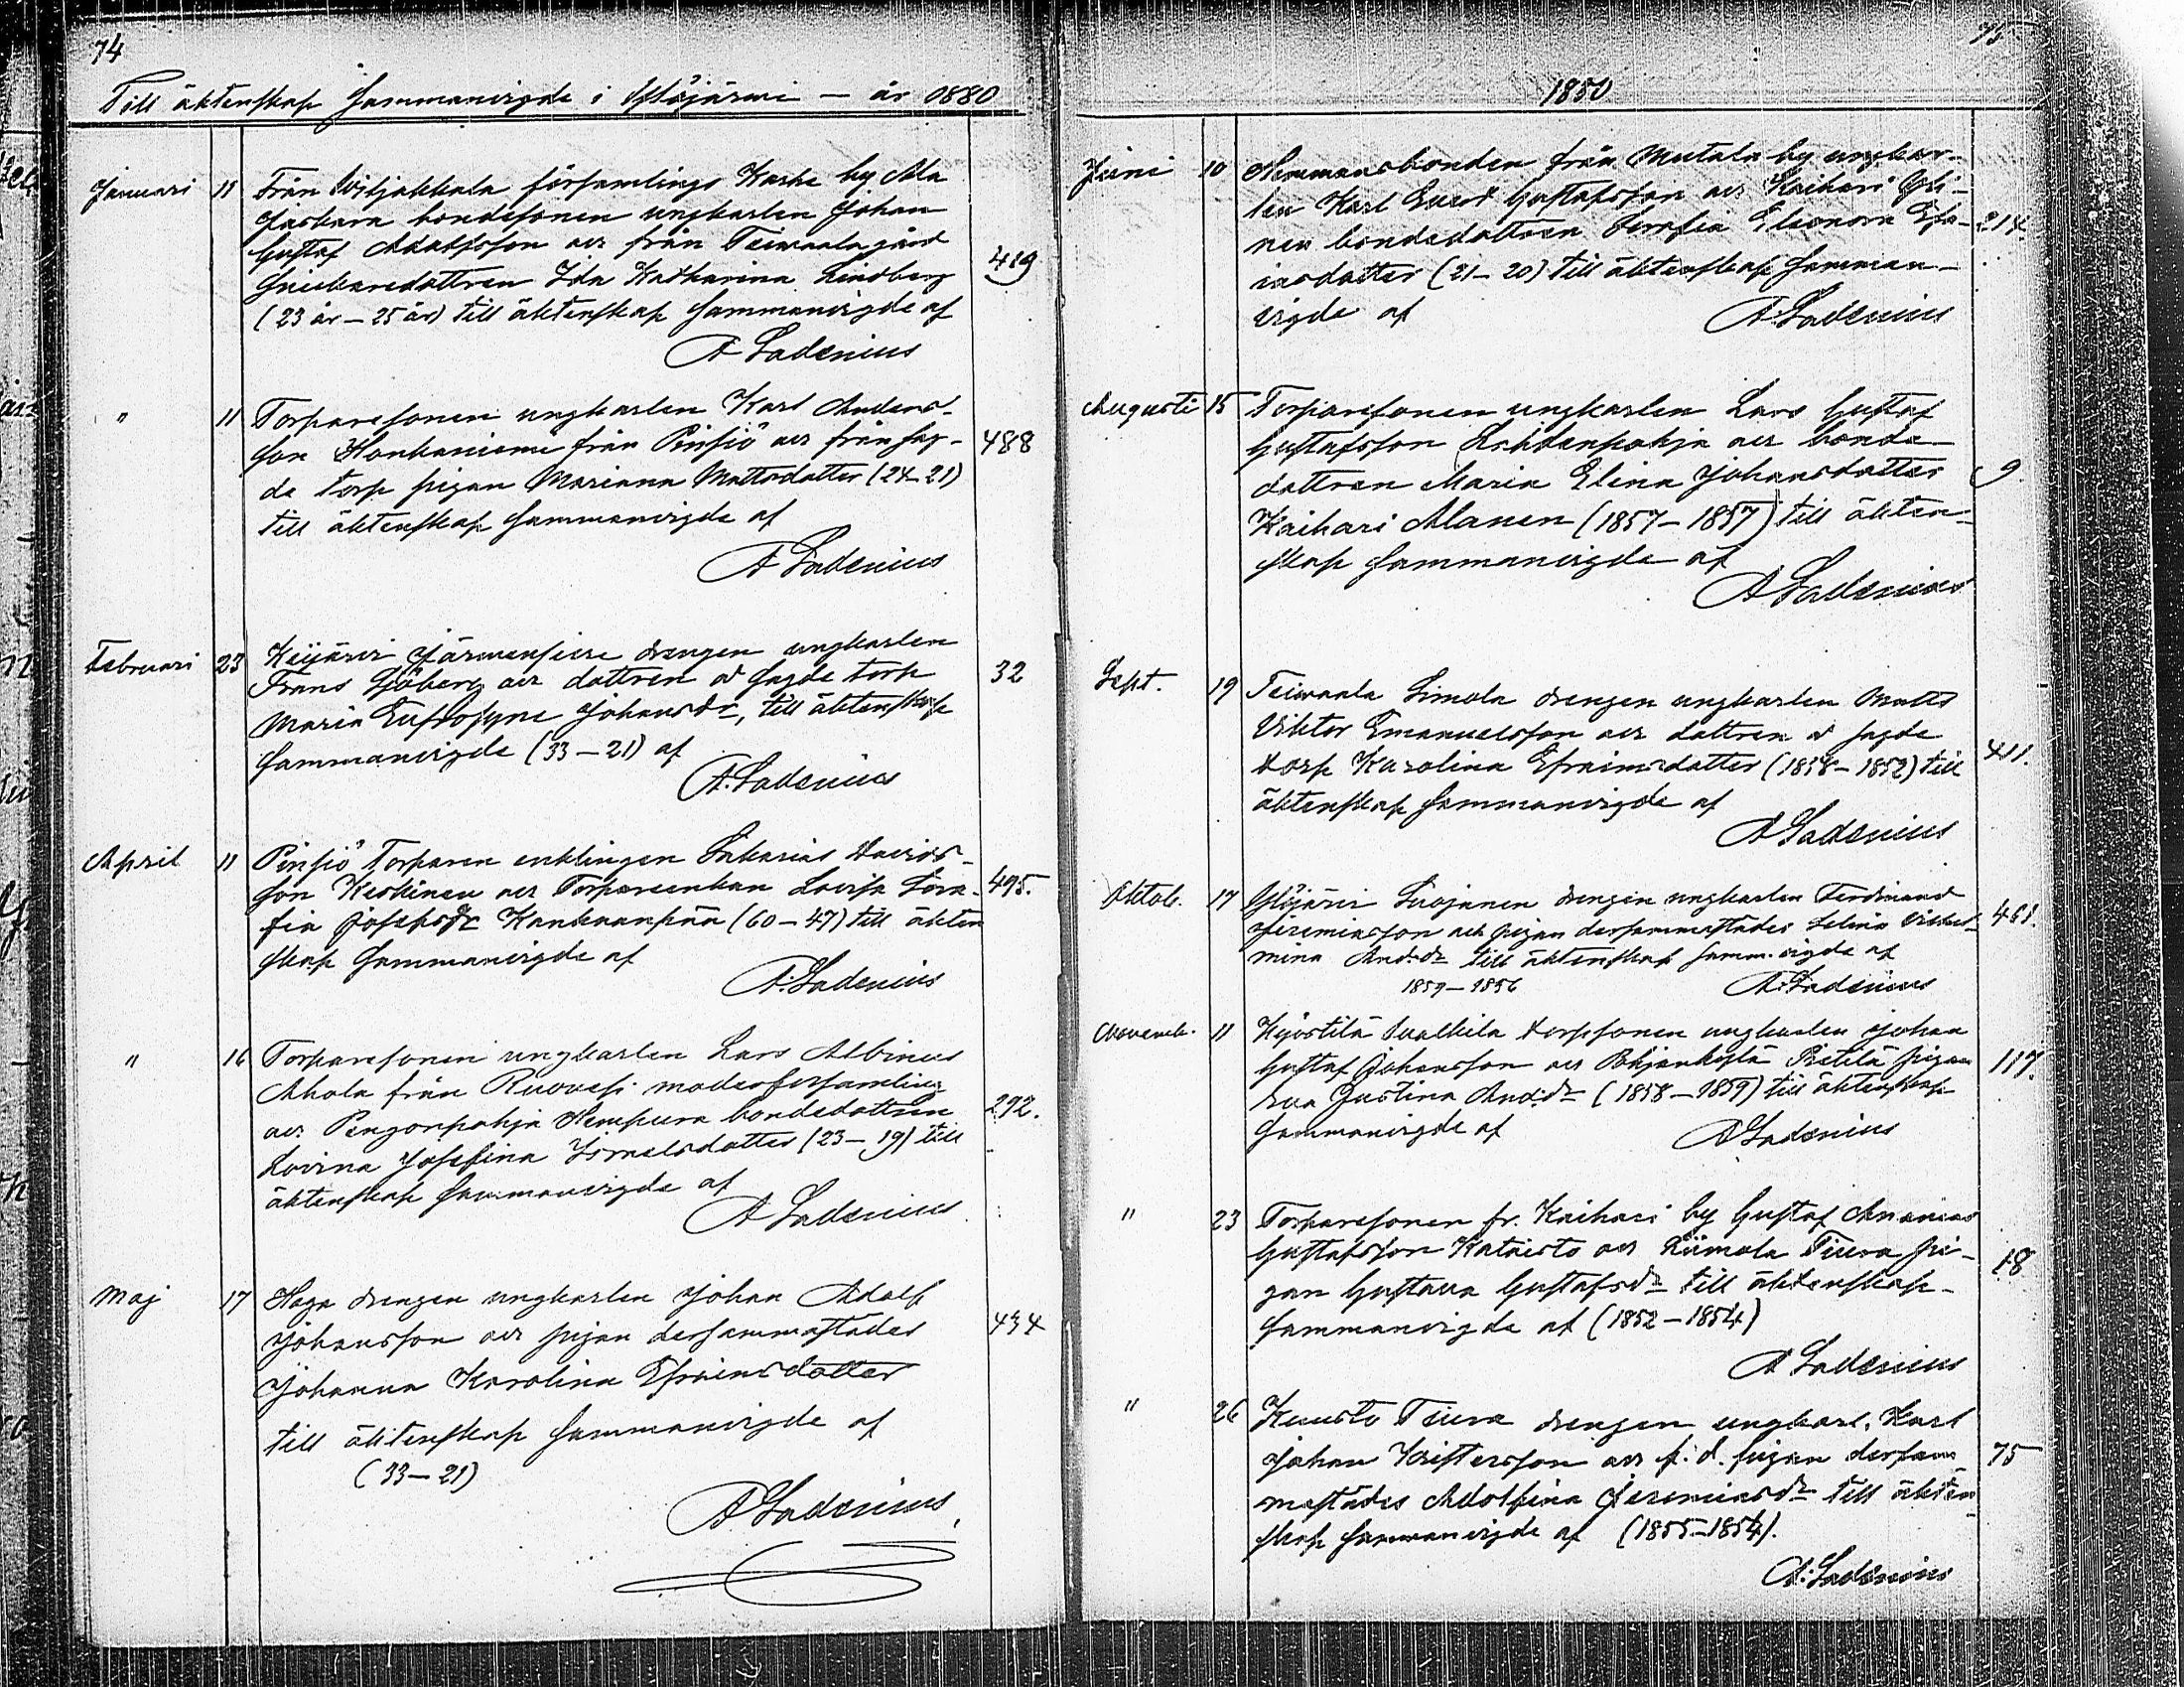 74
Till äktenskap Sammanvigde i Ylöjärvi — år 1880
Januari 11 Från Wiljakkala församlings Karhe by Ala
Jaskara bondesonen ungkarlen Johan
Gustaf Adolfsson och från Teivaala gård
Snickaredottren Ida Katharina Lindberg 419
(23 år – 25 år) till äktenskap Sammanvigde af
A Ladenius
" 11 Torparesonen ungkarlen Karl Anders-
son Honkaniemi från Pinsiö och från sag- 488
da torp pigan Mariana Mattsdotter (24–21)
till äktenskap Sammanvigde af
A Ladenius
Februari 23 Keijärvi Järvensivu drengen ungkarlen
Frans Sjöberg och dottren å sagde torp 32
Maria Eufrosyne Johansdr, till äktenskap
Sammanvigde (33–21) af
A. Ladenius
April 11 Pinsiö Torparen enklingen Sakarias Davids-
son Keskinen och Torpareenkan Lovisa Sera- 495.
fia Josefsdr Kankaanpää (60–47) till äkten
skap Sammanvigde af
A. Ladenius
" 16 Torparesonen ungkarlen Lars Albinus
Ahola från Ruovesi moderförsamling
och Pengonpohja Hempura bondedottren 292.
Lovina Josefina Ismelsdotter (23–19) till
äktenskap Sammanvigde af
A Ladenius
Maj 17 Haga drengen ungkarlen Johan Adolf
Johansson och pigan dersammastädes 434
Johanna Karolina Efraimsdotter
till äktenskap Sammanvigde af
(33–21)
A Ladenius
75
1880
Juni 10 Hemmansbonden från Mutala by ungkar-
len Karl Evert Gustafsson och Kaihari Yli-
nen bondedottren Serafia Eleonora Esa- 214.
iasdotter (21–20) till äktenskap Samman-
vigde af A. Ladenius
Augusti 15 Torparesonen ungkarlen Lars Gustaf
Gustafsson Lehdenpohja och bonde-
dottren Maria Elina Johansdotter 9.
Kaihari Alanen (1857–1857) till äkten-
skap Sammanvigde af
A Ladenius
Sept. 19 Teivaala Simola drengen ungkarlen Matts
Viktor Emanuelsson och dottren å sagde
torp Karolina Efraimsdotter (1858–1852) till 411.
äktenskap Sammanvigde af
A Ladenius
Oktob. 17 Ylöjärvi Soojanen drengen ungkarlen Ferdinand
Jeremiasson och pigan dersammastädes Selina Vilhel- 461.
mina And.dr till äktenskap Samm.vigde af
1859–1856 A. Ladenius
Novemb. 11 Kyöstilä Svalkila torpsonen ungkarlen Johan
Gustaf Johansson och Pohjankylä Pietilä pigan 117.
Eva Gustina And:dr (1858–1859) till äktenskap
Sammanvigde af A Ladenius
" 23 Torparesonen fr. Kaihari by Gustaf Ananias
Gustafsson Kataisto och Liimola Tiura pi- 18
gan Gustava Gustafsdr till äktenskap
Sammanvigde af (1852–1854)
A Ladenius
" 26 Kuusto Tiura drengen ungkarl. Karl
Johan Kristersson och f.d. pigan dersam- 75
mastädes Adolfina Jeremiasdr till äkten
skap Sammanvigde af (1855–1854).
A. Ladenius